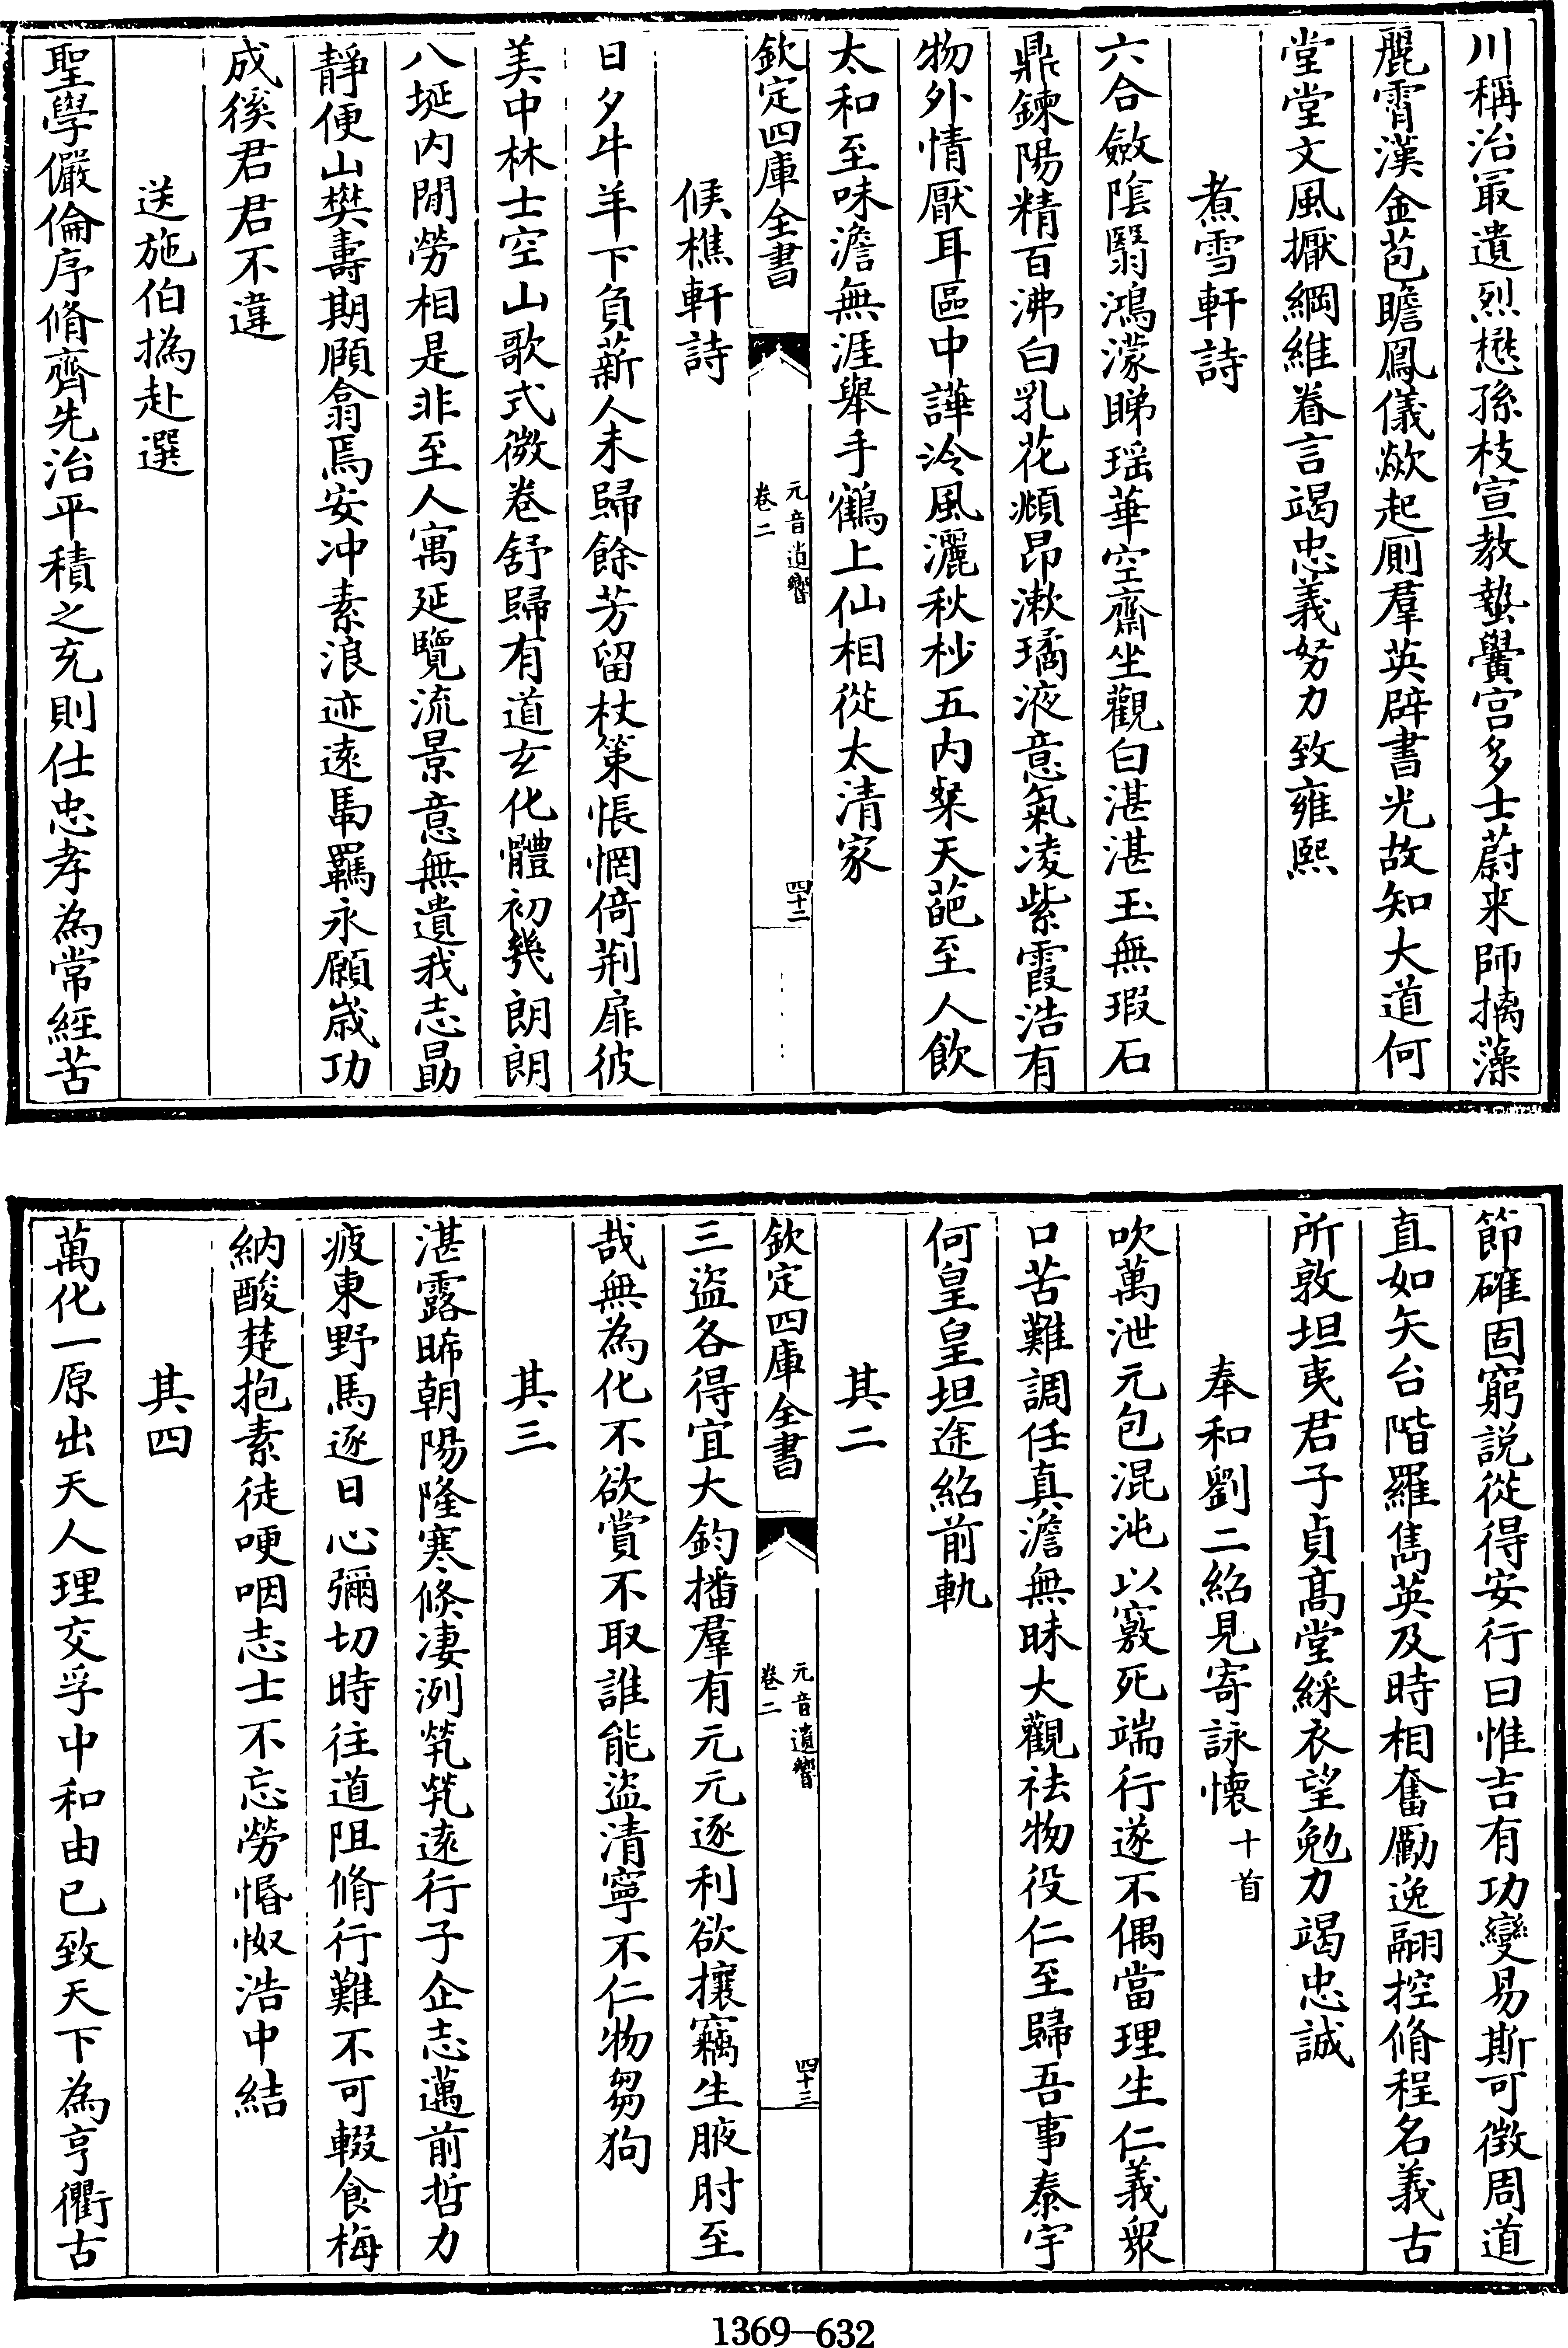 川稱治最遺烈懋孫枝宣教蟄黌宫多士蔚来師摛藻
麗霄漢金苞瞻鳳儀歘起厠羣英辟書光故知大道何
堂堂文風擫綱維眷言竭忠義努力致雍熙
煮雪軒詩
六合斂陰翳鴻濛睇瑶華空齋坐觀白湛湛玉無瑕石
鼎鍊陽精百沸白乳花頫昂漱璚液意氣凌紫霞浩有
物外情厭耳區中譁泠風灑秋杪五内粲天葩至人飲
太和至味澹無涯舉手鶴上仙相從太清家
欽定四庫全書
元音遺響
卷二
四十二
候樵軒詩
日夕牛羊下負薪人未歸餘芳留杖策悵惘倚荆扉彼
美中林士空山歌式微卷舒歸有道玄化體初幾朗朗
八埏内閒勞相是非至人寓延覽流景意無遺我志勗
靜便山樊壽期頤翕焉安冲素浪迹遠馽羈永願歲功
成徯君君不違
送施伯撝赴選
聖學儼倫序脩齊先治平積之充則仕忠孝為常經苦
節確固窮説從得安行曰惟吉有功變易斯可徴周道
直如矢台階羅雋英及時相奮勵逸翮控脩程名義古
所敦坦夷君子貞髙堂綵衣望勉力竭忠誠
奉和劉二紹見寄詠懐十首
吹萬泄元包混沌以竅死端行遂不偶當理生仁義衆
口苦難調任真澹無昧大觀祛物役仁至歸吾事泰宇
何皇皇坦途紹前軌
其二
欽定四庫全書
元音遺響
卷二
四十三
三盜各得宜大鈞播羣有元元逐利欲攘竊生腋肘至
哉無為化不欲賞不取誰能盜清寧不仁物芻狗
其三
湛露晞朝陽隆寒倐凄洌煢煢遠行子企志邁前哲力
疲東野馬逐日心彌切時往道阻脩行難不可輟食梅
納酸楚抱素徒哽咽志士不忘勞惛怓浩中結
其四
萬化一原出天人理交孚中和由已致天下為亨衢古
1369—632